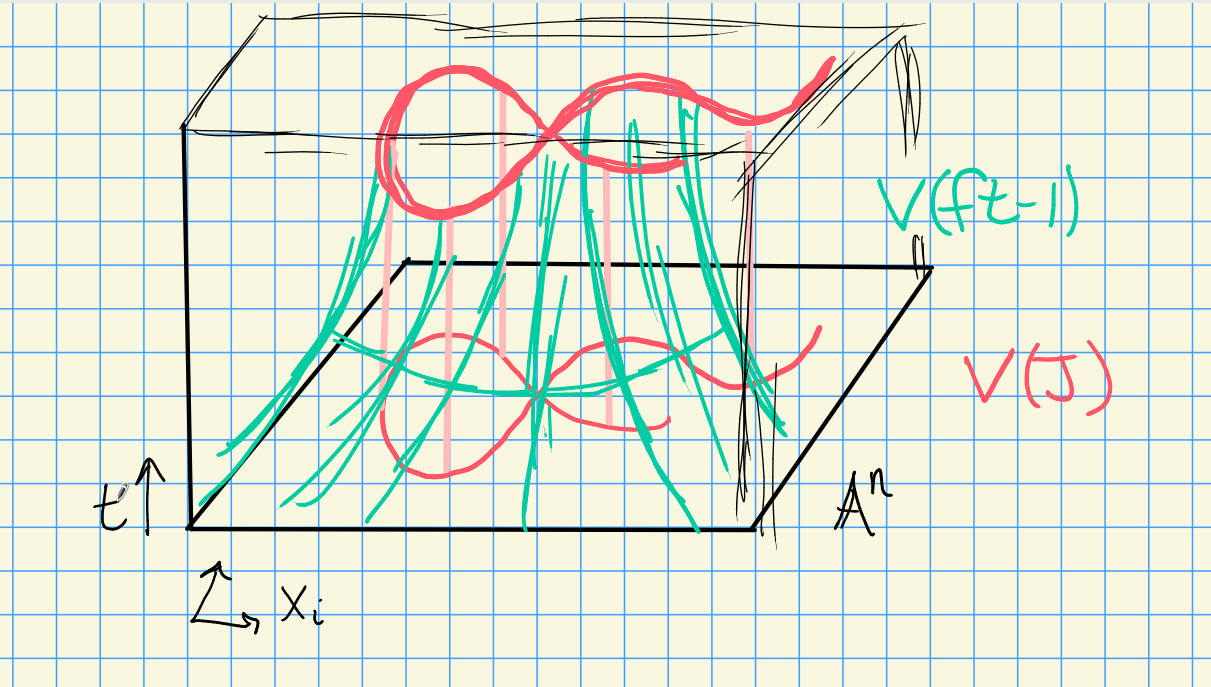 V(ft-1)
V(J)
t
Aⁿ
xᵢ